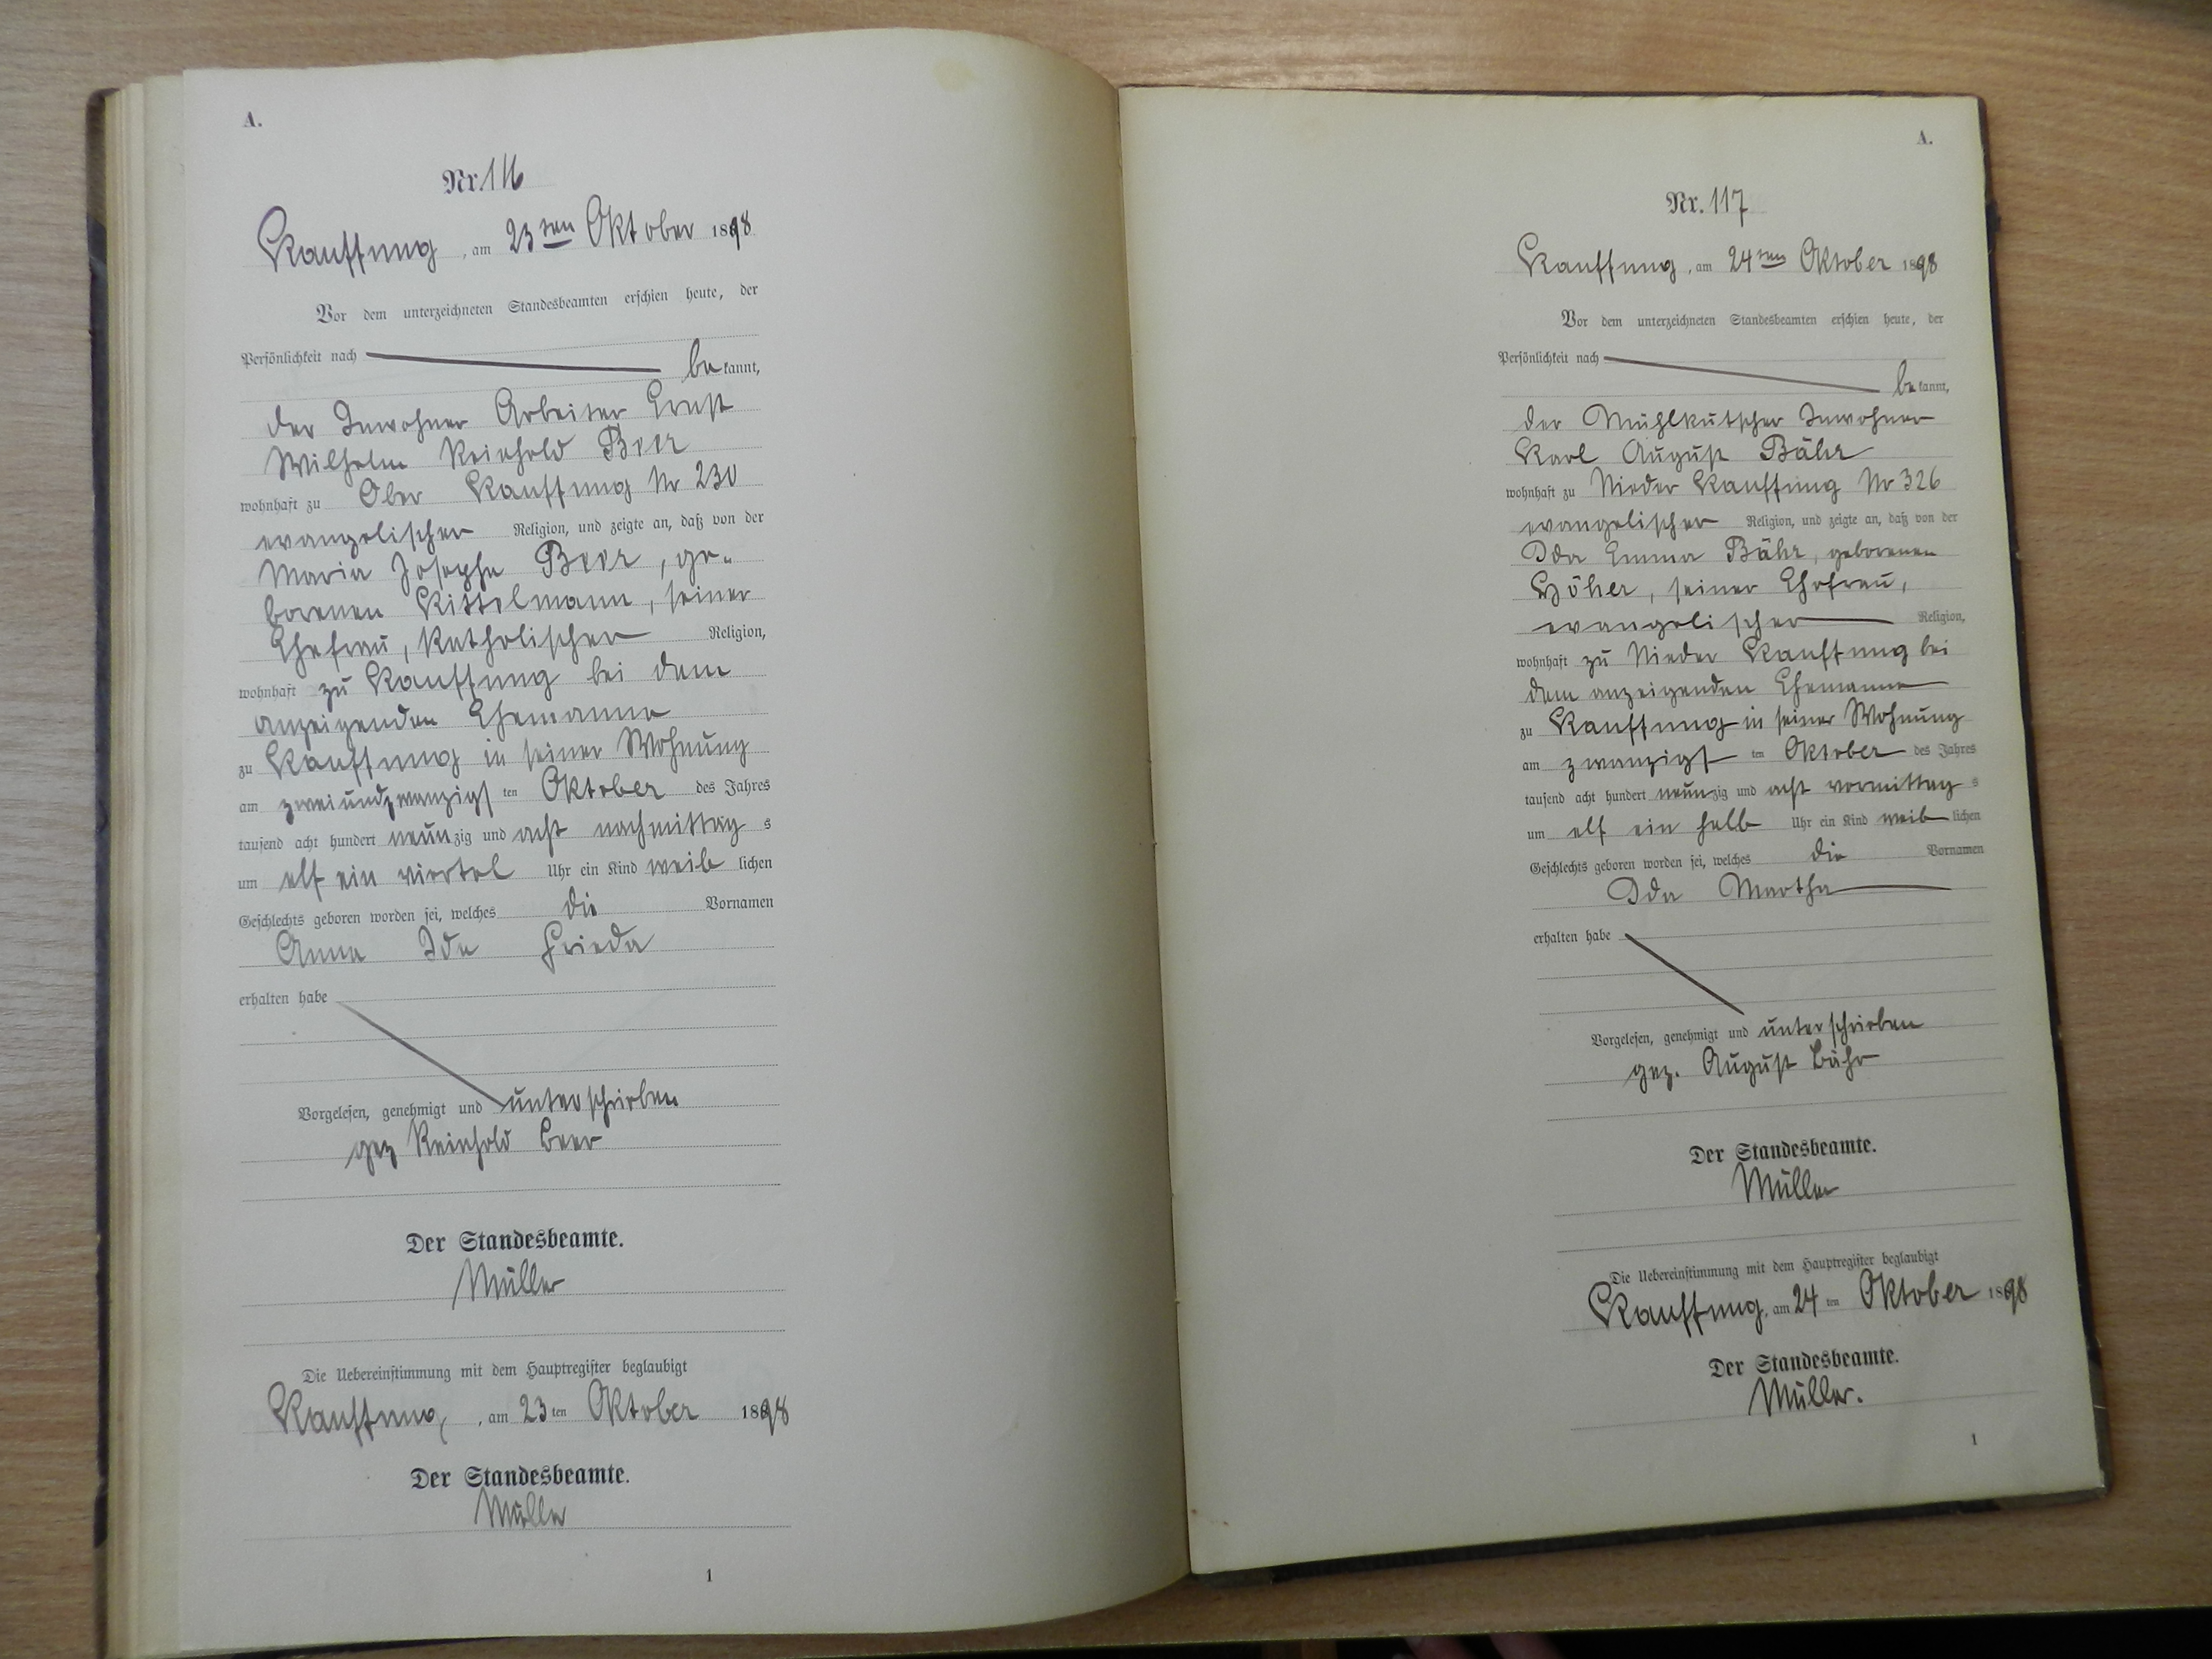 A.
Nr. 116
Kauffung, am 23ten Oktober 1898.
Vor dem unterzeichneten Standesbeamten erschien heute, der
Persönlichkeit nach
bekannt,
der Inwohner Arbeiter Ernst
Wilhelm Reinhold Beer
wohnhaft zu Ober Kauffung Nr 230
evangelischer Religion, und zeigte an, daß von der
Maria Josepha Beer, ge-
borenen Kittelmann, seiner
Ehefrau, katholischer Religion,
wohnhaft zu Kauffung bei dem
anzeigenden Ehemanne
zu Kauffung in seiner Wohnung
am zweiundzwanzigsten Oktober des Jahres
tausend acht hundert neunzig und acht nachmittags
um elf ein viertel Uhr ein Kind weiblichen
Geschlechts geboren worden sei, welches die Vornamen
Anna Ida Frieda
erhalten habe
Vorgelesen, genehmigt und unterschrieben
gez Reinhold Beer
Der Standesbeamte.
Müller
Die Uebereinstimmung mit dem Hauptregister beglaubigt
Kauffung, am 23ten Oktober 1898
Der Standesbeamte.
Müller
1
A.
Nr. 117
Kauffung, am 24ten Oktober 1898
Vor dem unterzeichneten Standesbeamten erschien heute, der
Persönlichkeit nach
bekannt,
der Mühlkutscher Inwohner
Karl August Bähr
wohnhaft zu Nieder Kauffung Nr 326
evangelischer Religion, und zeigte an, daß von der
Ida Emma Bähr, geborenen
seiner Ehefrau,
evangelischer Religion,
wohnhaft zu Nieder Kauffung bei
dem anzeigenden Ehemanne
zu Kauffung in seiner Wohnung
am zwanzigsten Oktober des Jahres
tausend acht hundert neunzig und acht vormittags
um elf ein halb Uhr ein Kind weiblichen
Geschlechts geboren worden sei, welches die Vornamen
Ida Martha
erhalten habe
Vorgelesen, genehmigt und unterschrieben
gez. August Bähr
Der Standesbeamte.
Müller
Die Uebereinstimmung mit dem Hauptregister beglaubigt
Kauffung, am 24ten Oktober 1898
Der Standesbeamte.
Müller.
1